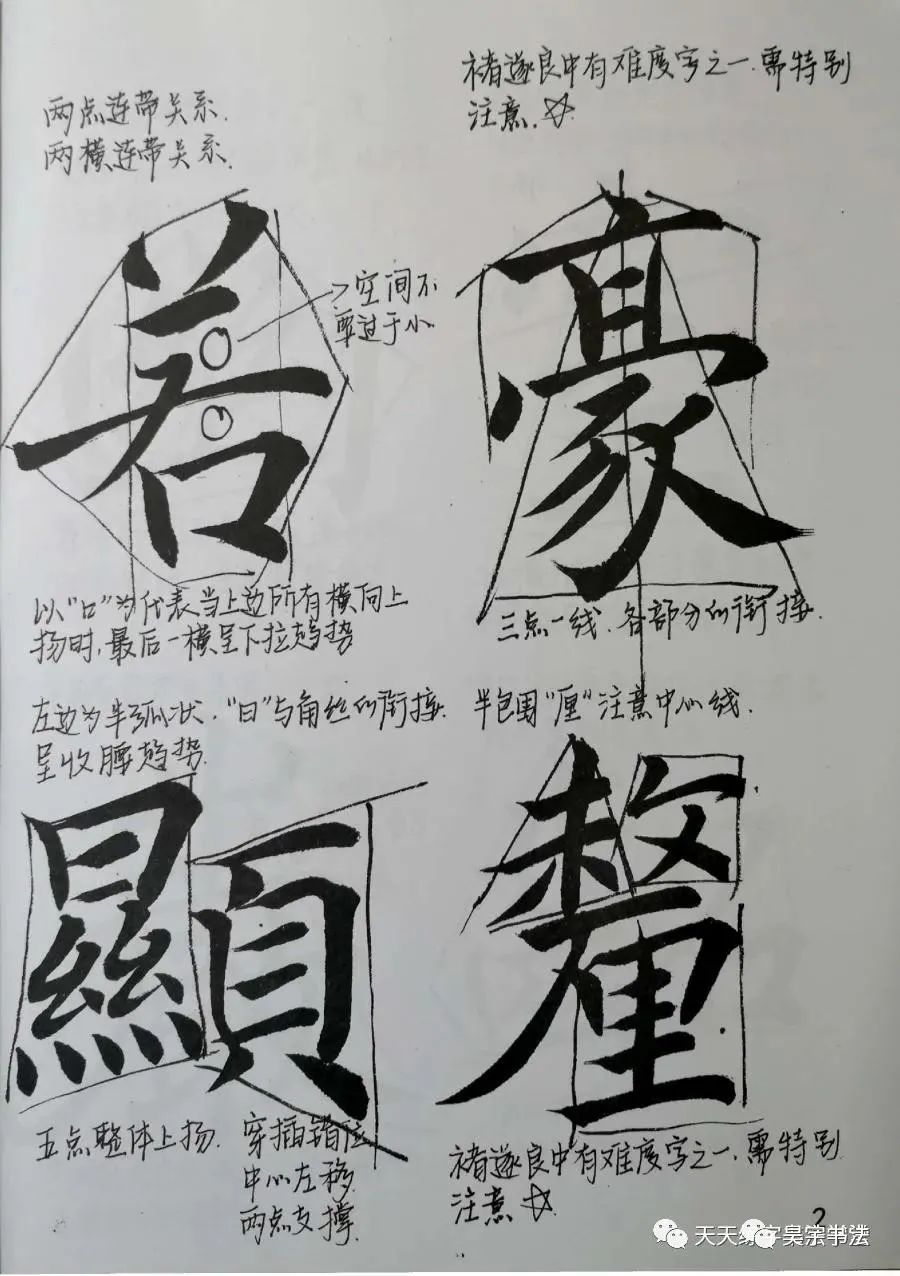 两点连带关系.
两横连带关系.
褚遂良中有难度字之一.需特别
注意.☆
若
→空间不
要过于小.
豪
以“口”为代表当上边所有横向上
扬时,最后一横呈下拉趋势
三点一线.各部分的衔接.
左边为半弧状.“日”与角丝的衔接.
呈收腰趋势.
半包围“厘”注意中心线.
顯
釐
五点整体上扬.
穿插错位
中心左移.
两点支撑.
褚遂良中有难度字之一.需特别
注意☆
2